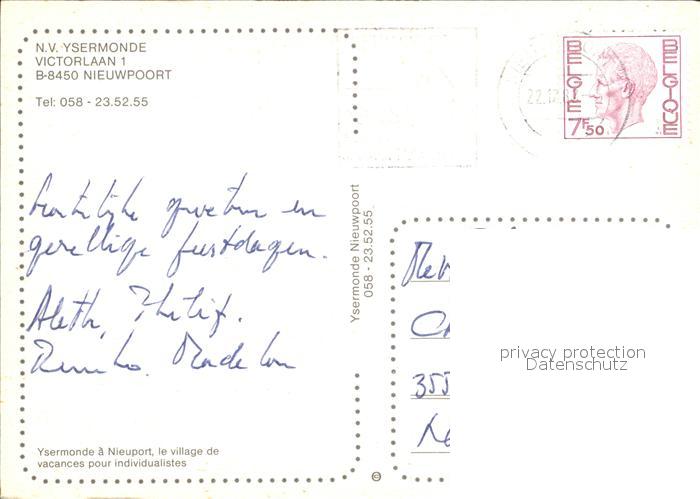 N.V. YSERMONDE
VICTORLAAN 1
B-8450 NIEUWPOORT
Tel: 058 - 23.52.55
hartelijke groeten en
gezellige feestdagen.
Aleth, Philip.
Madelon
Ysermonde à Nieuport, le village de
vacances pour individualistes
Ysermonde Nieuwpoort
058 - 23.52.55.
BELGIE
BELGIQUE
7F50
22.12.8
Mev
355
privacy protection
Datenschutz